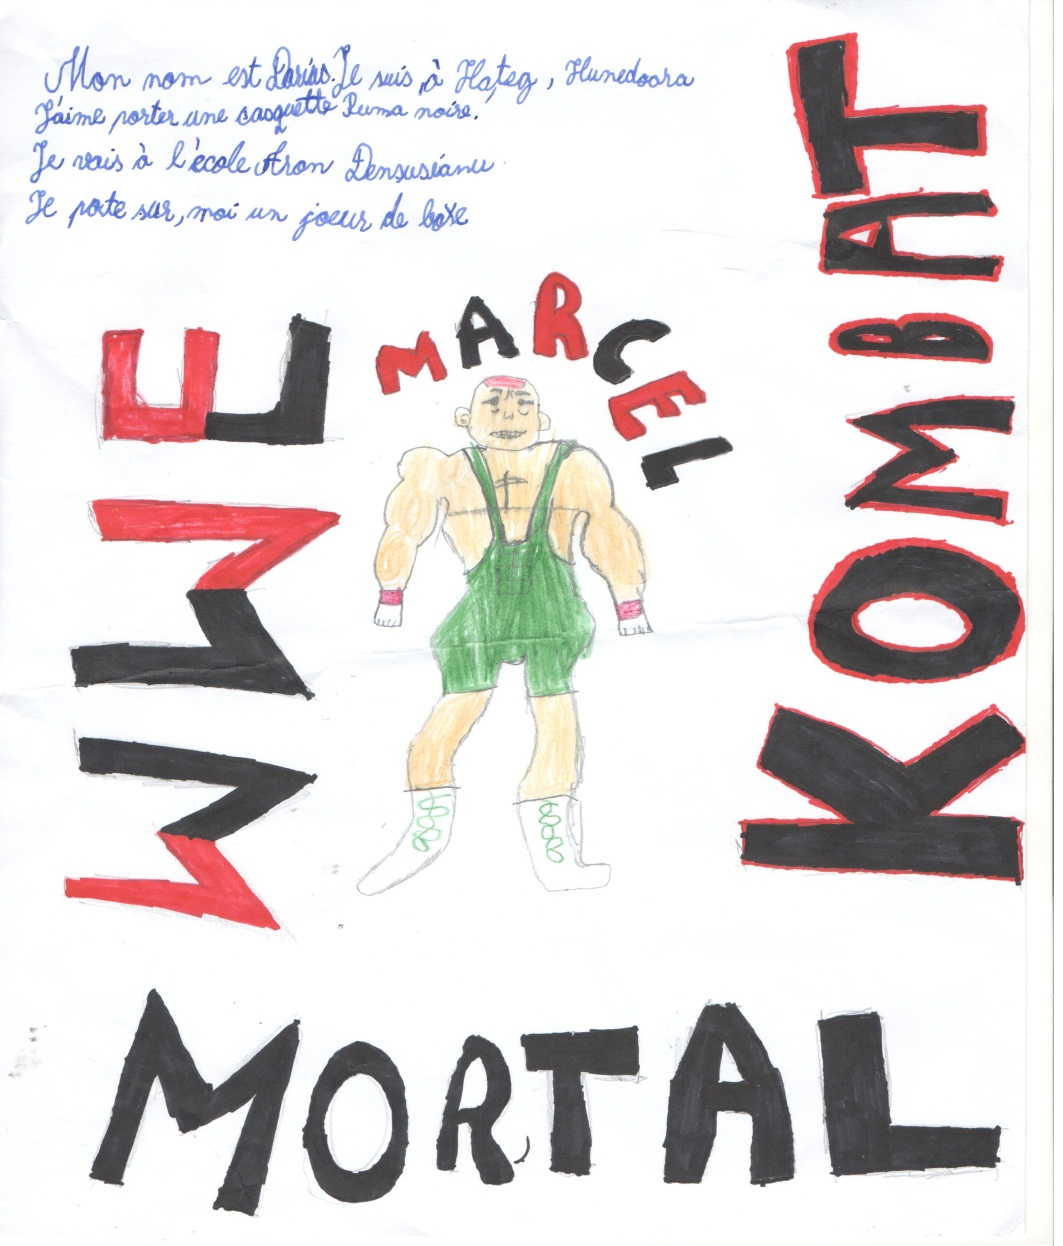 Mon nom est Darius. Je suis à Hațeg, Hunedoara
J'aime porter une casquette Puma noire.
Je vais à l'école Aron Densusianu
Je porte sur, moi un joeur de boxe
MARCEL
WWE
KOMBAT
MORTAL